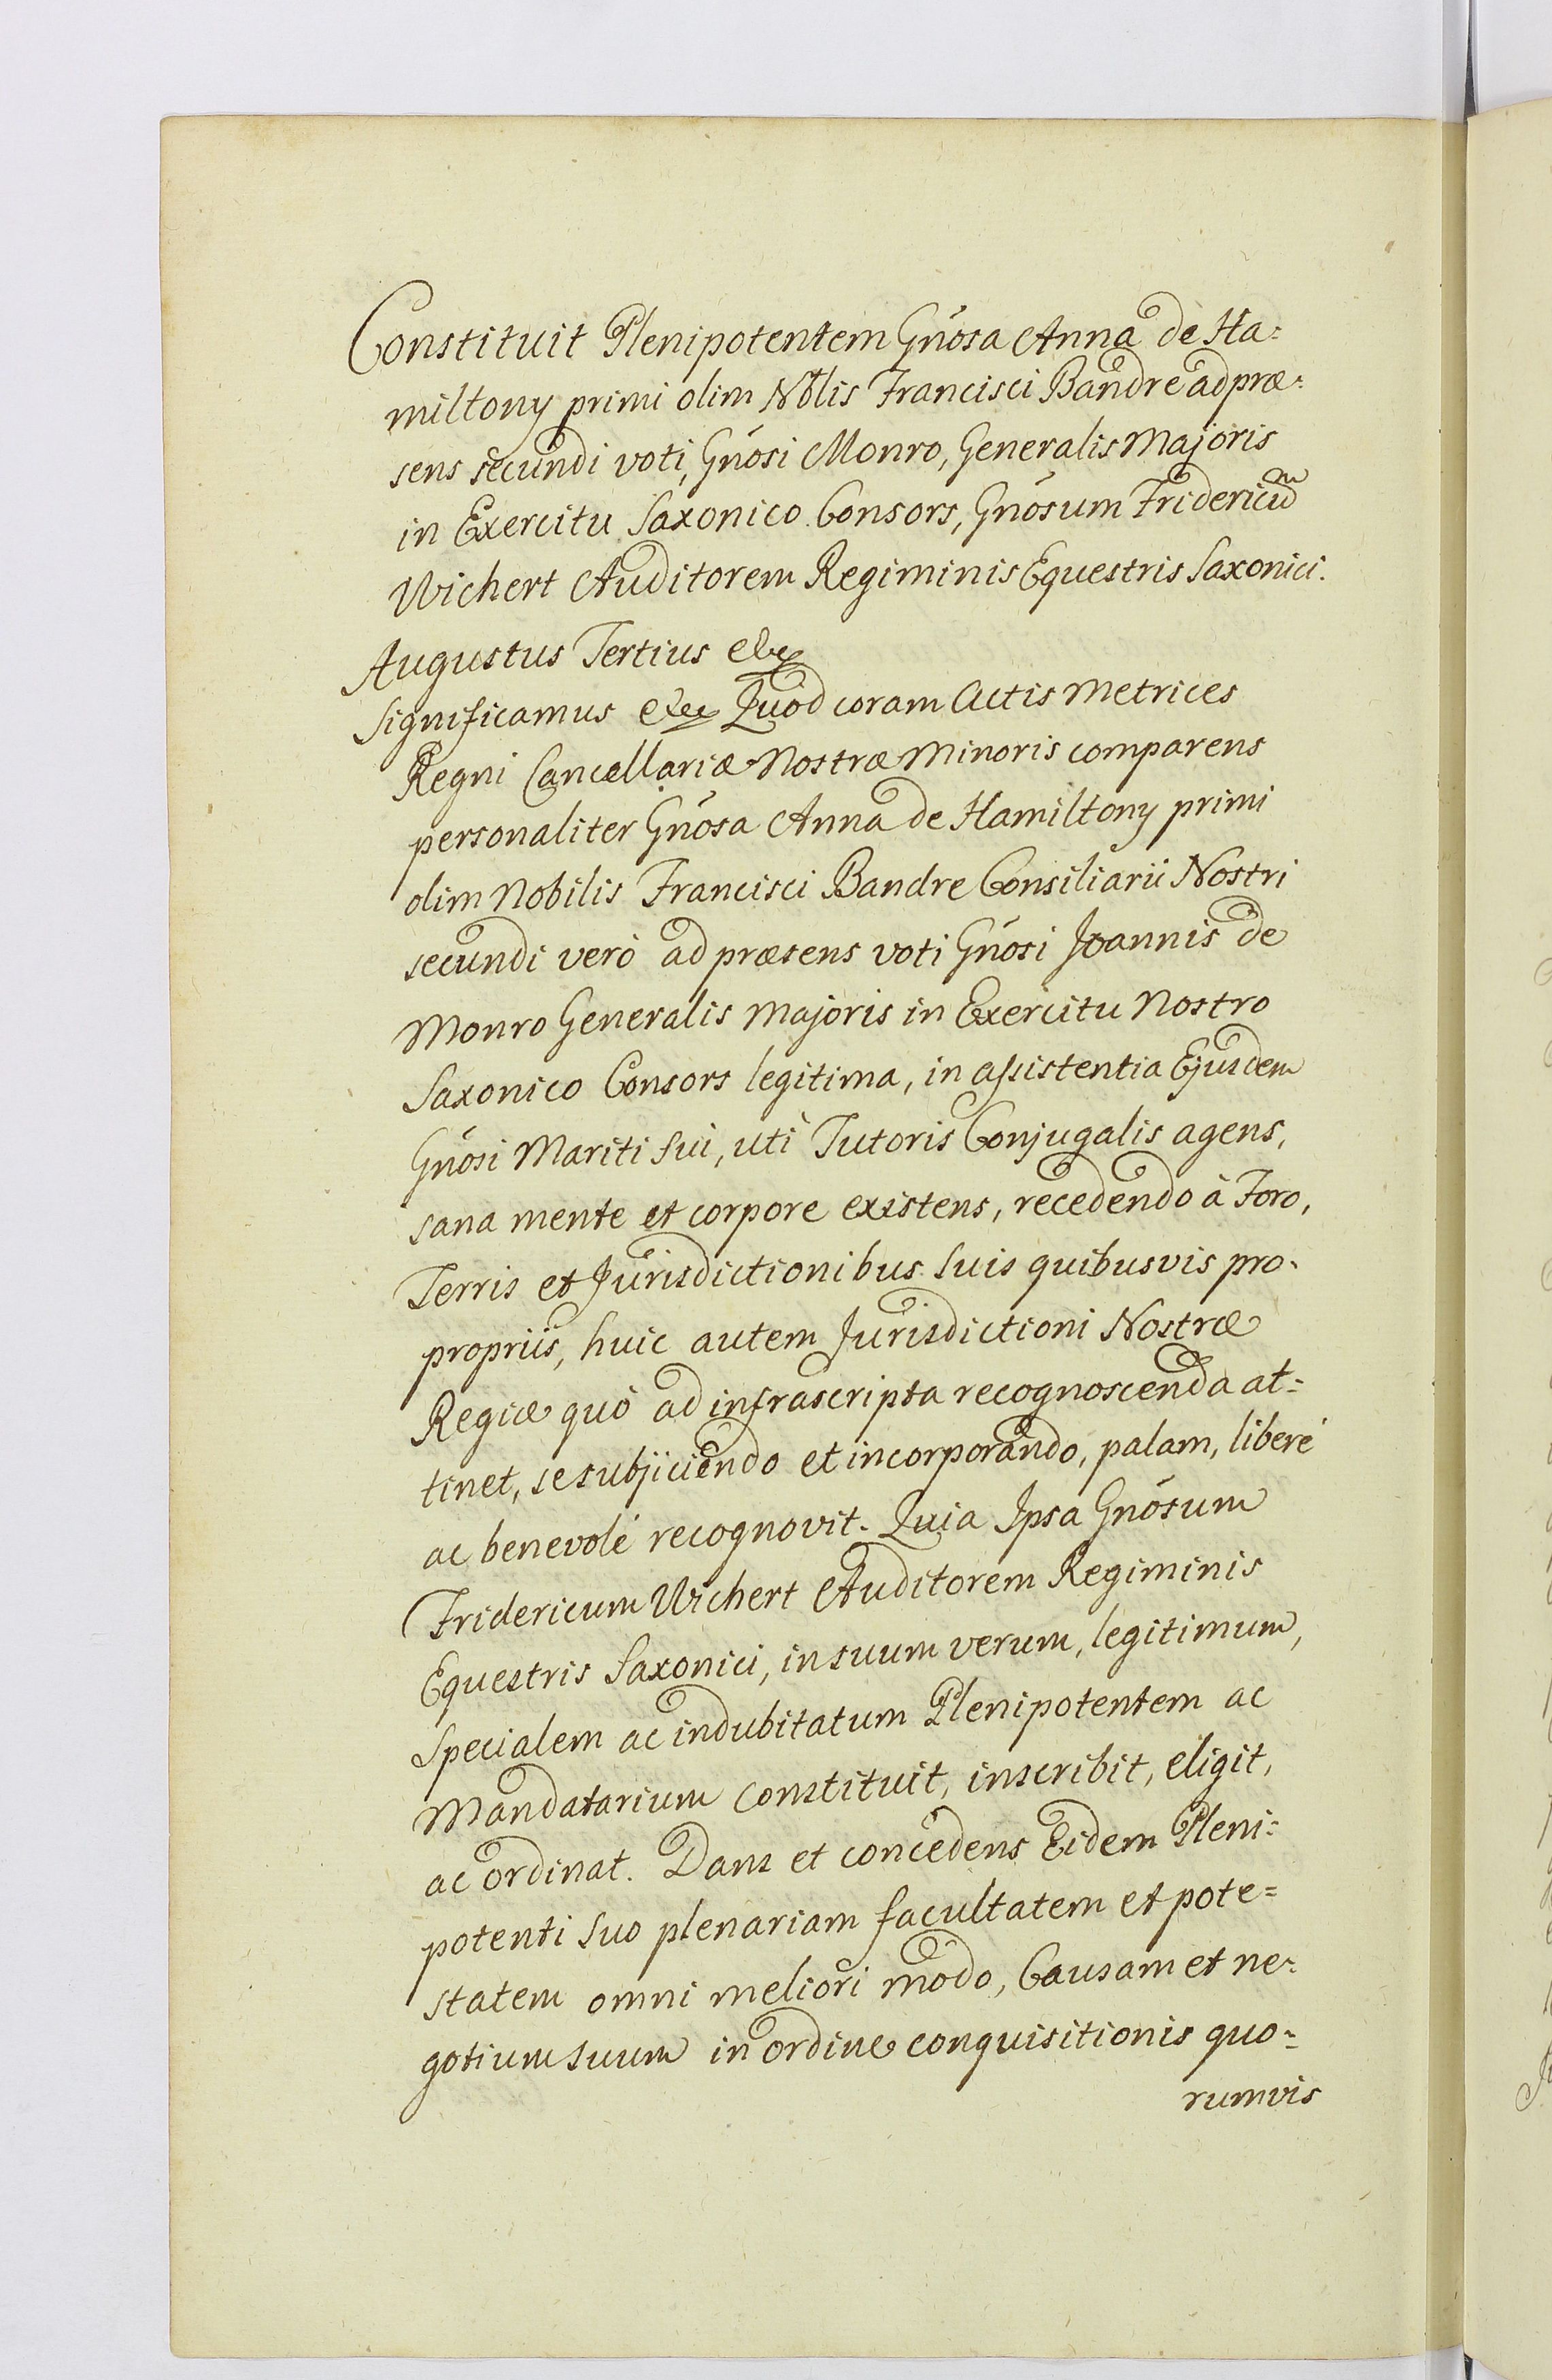 Constituit Plenipotentem Gnosa Anna de Ha=
miltony primi olim Nblis Francisci Bandre ad præ=
sens secundi voti, Gnosi Monro, Generalis Majoris
in Exercitu Saxonico Consors, Gnosum Fridericum
Wichert Auditorem Regiminis Equestris Saxonici.
Augustus Tertius etc
Significamus etc Quod coram Actis Metrices
Regni Cancellariæ Nostræ Minoris comparens
personaliter Gnosa Anna de Hamiltony primi
olim Nobilis Francisci Bandre Consiliarii Nostri
secundi verò ad præsens voti Gnosi Joannis de
Monro Generalis Majoris in Exercitu Nostro
Saxonico Consors legitima, in assistentia Ejusdem
Gnosi Mariti sui, uti Tutoris Conjugalis agens,
sana mente et corpore existens, recedendo à Foro,
Terris et Jurisdictionibus suis quibusvis pro-
propriis, huic autem Jurisdictioni Nostræ
Regiæ quò ad infrascripta recognoscenda at=
tinet, se subjiciendo et incorporando, palam, liberé
ac benevolé recognovit. Quia Ipsa Gnosum
Fridericum Wichert Auditorem Regiminis
Equestris Saxonici, in suum verum, legitimum,
specialem ac indubitatum Plenipotentem ac
Mandatarium constituit, inscribit, eligit,
ac ordinat. Dans et concedens Eidem Pleni=
potenti suo plenariam facultatem et pote=
statem omni meliori modo, Causam et ne=
gotium suum in ordine conquisitionis quo=
rumvis